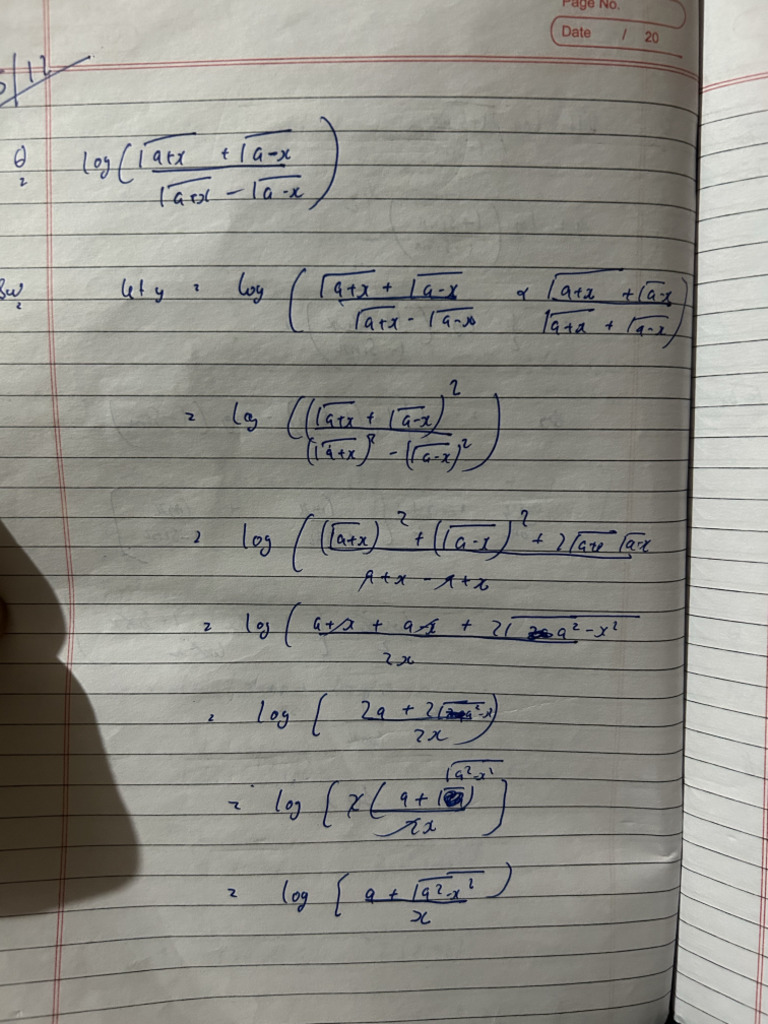 Page No.
Date / 20
/12
Q log(√a+x + √a-x / √a+x - √a-x)
let y = log (√a+x + √a-x / √a+x - √a-x × √a+x + √a-x / √a+x + √a-x)
= log ((√a+x + √a-x)² / (√a+x)² - (√a-x)²)
= log ((√a+x)² + (√a-x)² + 2√a+x √a-x / a+x - a+x
= log (a+x + a-x + 2√a²-x² / 2x
= log [2a + 2√a²-x² / 2x)
= log [2(a + √a²-x²) / 2x]
= log [a + √a²-x² / x)